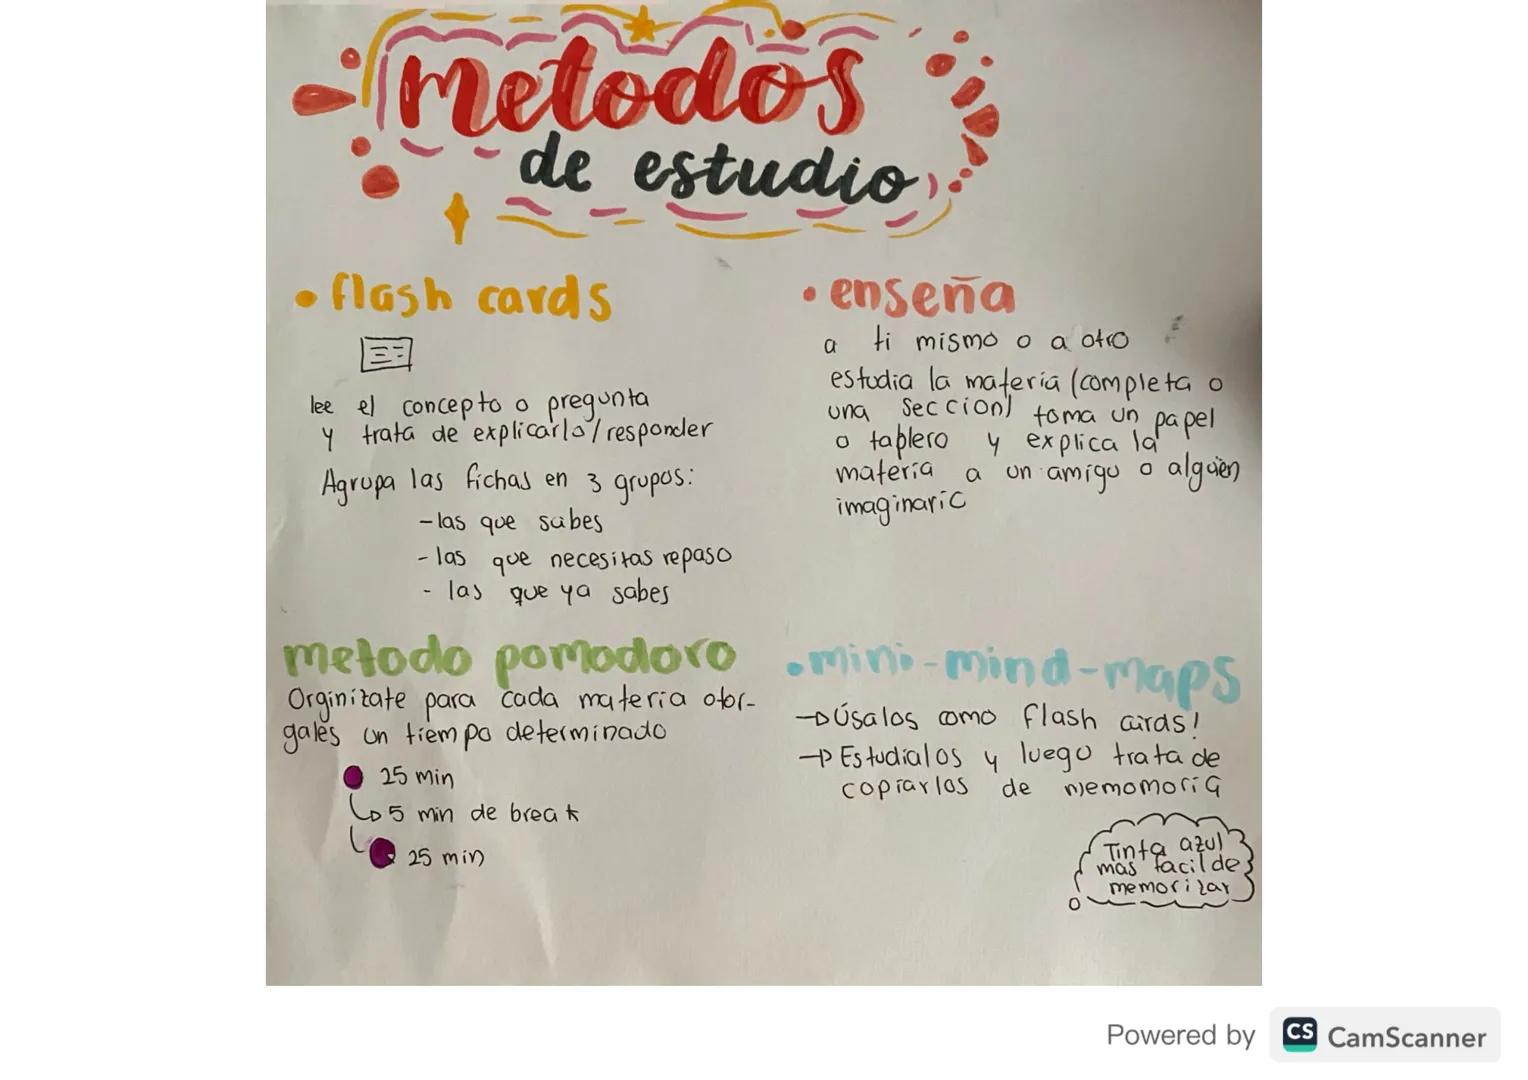 metodos
de estudio
• flash cards
lee el concepto o pregunta
y trata de explicarlo/responder
Agrupa las fichas en 3 grupos:
- las que sabes
- las que necesitas repaso
- las que ya sabes
• enseña
a ti mismo o a otro
estudia la materia (completa o
una seccion) toma un papel
o tablero y explica la
materia a un amigo o alguien
imaginario
metodo pomodoro
Orginizate para cada materia otor-
gales un tiempo determinado
25 min
↳ 5 min de break
↳ 25 min
• mini-mind-maps
→ Úsalos como flash cards!
→ Estudialos y luego trata de
copiarlos de memomoria
Tinta azul
mas facil de
memorizar
Powered by CS CamScanner